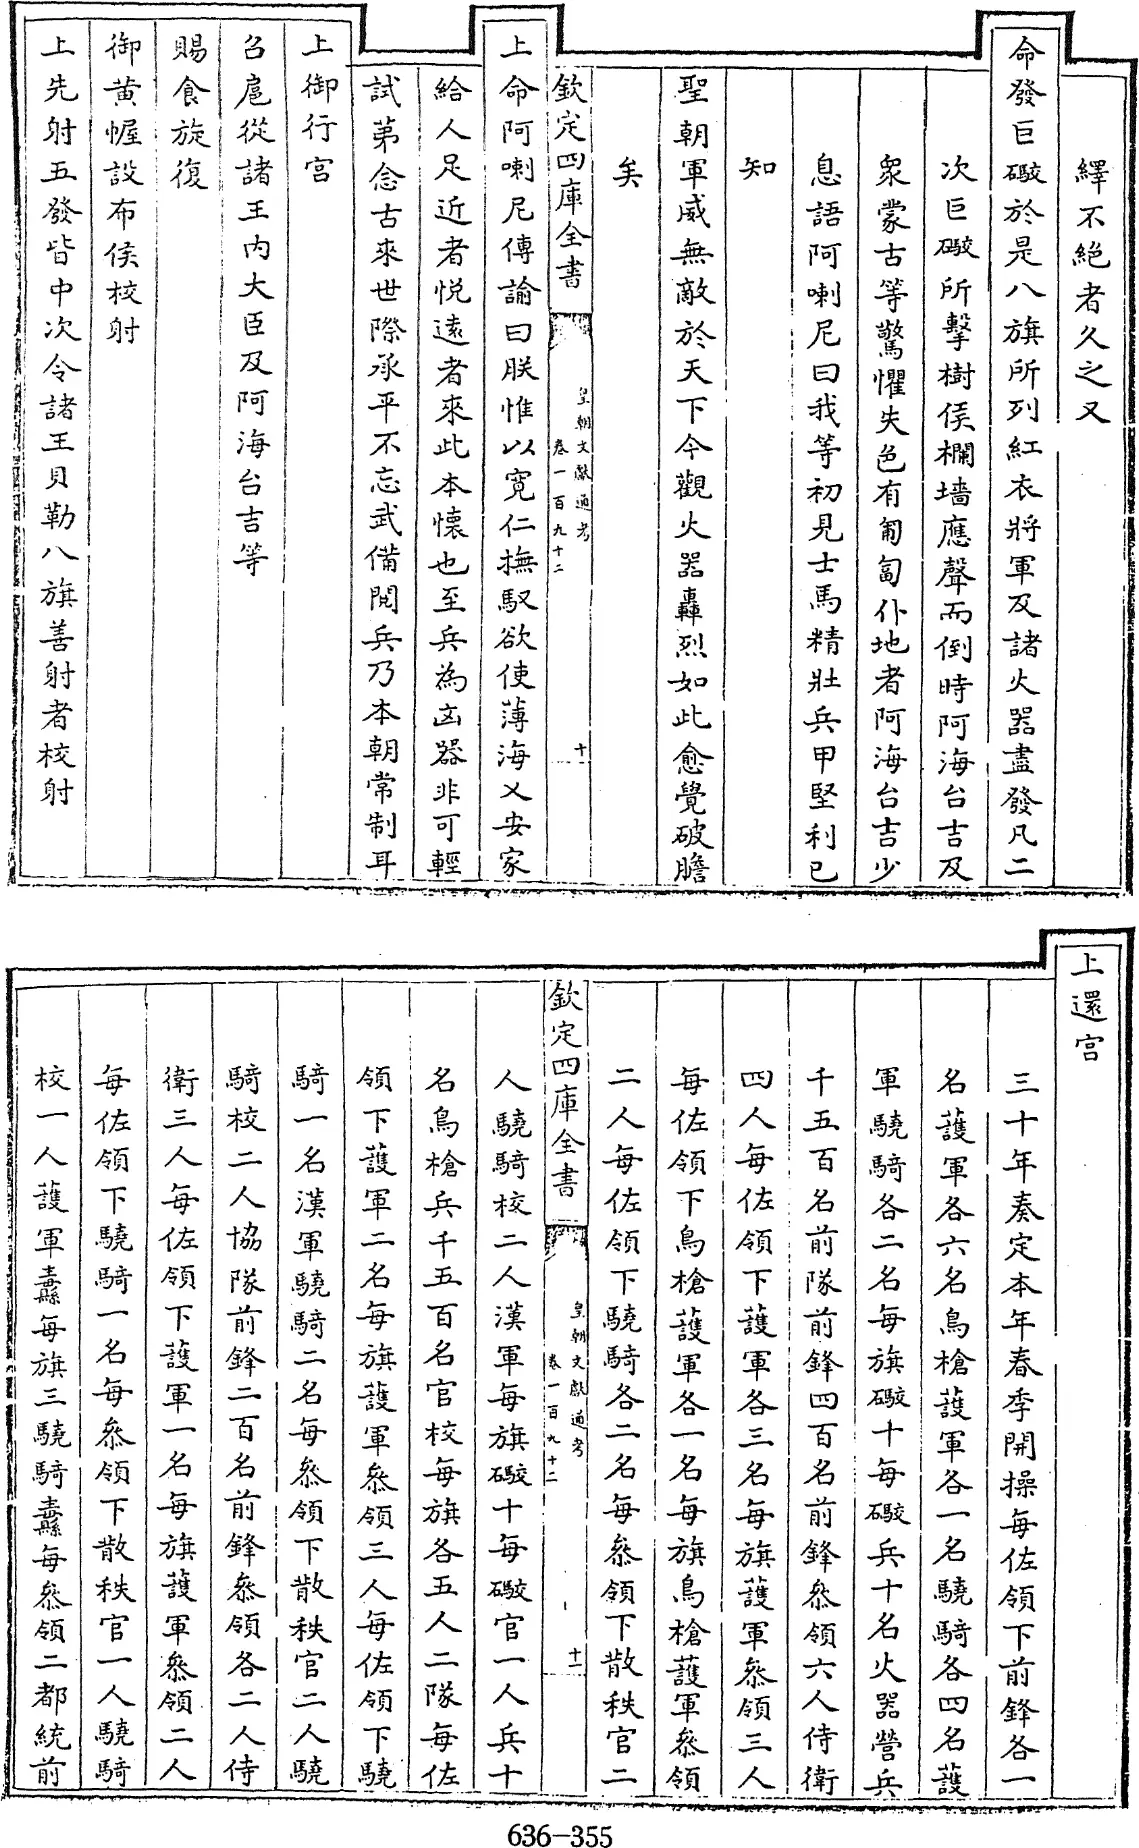 繹不絶者久之又
命發巨礮於是八旗所列紅衣將軍及諸火器盡發凡二
次巨礮所擊樹侯欄墻應聲而倒時阿海台吉及
衆蒙古等驚懼失色有匍匐仆地者阿海台吉少
息語阿喇尼曰我等初見士馬精壯兵甲堅利已
知
聖朝軍威無敵於天下今觀火器轟烈如此愈覺破膽
矣
欽定四庫全書
皇朝文獻通考
卷一百九十二
十
上命阿喇尼傳諭曰朕惟以寛仁撫馭欲使薄海乂安家
給人足近者悦遠者來此本懐也至兵為凶器非可輕
試第念古來世際承平不忘武備閲兵乃本朝常制耳
上御行宫
召扈從諸王内大臣及阿海台吉等
賜食旋復
御黄幄設布侯校射
上先射五發皆中次令諸王貝勒八旗善射者校射
上還宫
三十年奏定本年春季開操每佐領下前鋒各一
名護軍各六名鳥槍護軍各一名驍騎各四名護
軍驍騎各二名每旗礮十每礮兵十名火器營兵
千五百名前隊前鋒四百名前鋒叅領六人侍衛
四人每佐領下護軍各三名每旗護軍叅領三人
每佐領下鳥槍護軍各一名每旗鳥槍護軍叅領
二人每佐領下驍騎各二名每叅領下散秩官二
欽定四庫全書
皇朝文獻通考
卷一百九十二
十一
人驍騎校二人漢軍每旗礮十每礮官一人兵十
名鳥槍兵千五百名官校每旗各五人二隊每佐
領下護軍二名每旗護軍叅領三人每佐領下驍
騎一名漢軍驍騎二名每叅領下散秩官二人驍
騎校二人協隊前鋒二百名前鋒叅領各二人侍
衛三人每佐領下護軍一名每旗護軍叅領二人
每佐領下驍騎一名每叅領下散秩官一人驍騎
校一人護軍纛每旗三驍騎纛每叅領二都統前
636-355